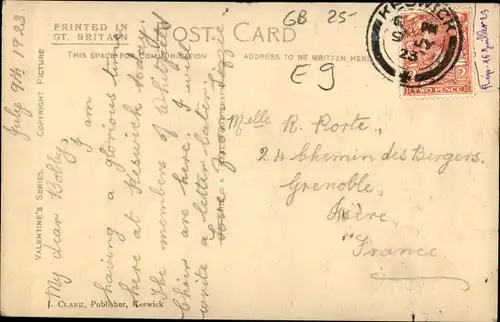 PRINTED IN
GT. BRITAIN
POST CARD
THIS SPACE FOR COMMUNICATION
ADDRESS TO BE WRITTEN HERE
VALENTINE'S SERIES.
COPYRIGHT PICTURE
J. CLARK, Publisher, Keswick
GB 25-
E 9
KESWICK
TWO PENCE
July 9th 1923
My dear Bobby,
I am
having a glorious time
here at Keswick today.
The members of
Choir are here. I will
write a letter later.
Love from Lizzie
Melle R. Porte,
24 Chemin des Bergers.
Grenoble,
Isère,
France